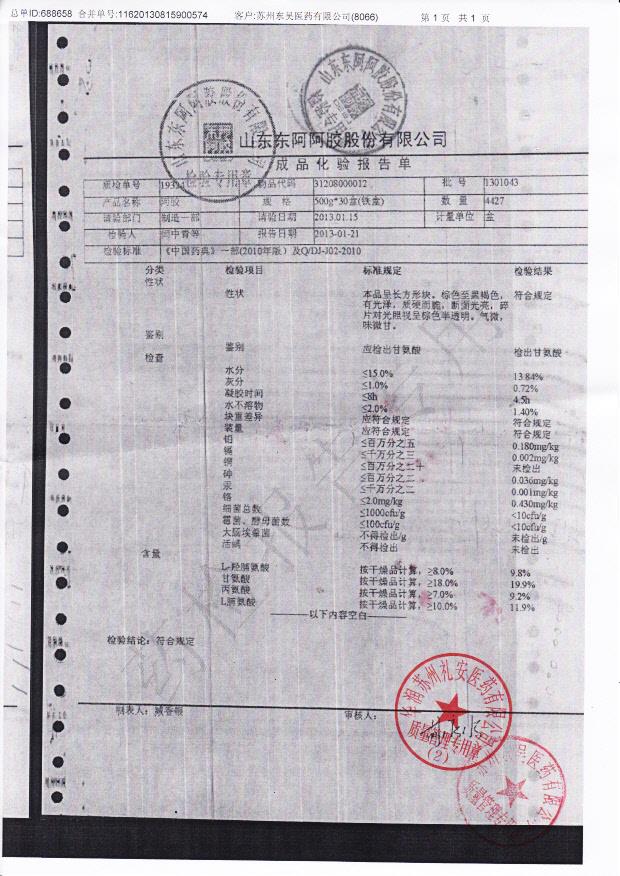 总单ID:688658 合并单号:11620130815900574 客户:苏州东吴医药有限公司(8066) 第1页 共1页
山东东阿阿胶股份有限公司
检验专用章
山东东阿阿胶股份有限公司
检验专用章
山东东阿阿胶股份有限公司
成品化验报告单
质检单号 物品代码 31208000012 批号 1301043
产品名称 阿胶 规格 500g*30盒(铁盒) 数量 4427
请验部门 制造一部 请验日期 2013.01.15 计量单位 盒
检验人 闫中青等 报告日期 2013-01-21
检验标准 《中国药典》一部(2010年版)及Q/DJ-J02-2010
分类 检验项目 标准规定 检验结果
性状
性状 本品呈长方形块。棕色至黑褐色, 符合规定
有光泽。质硬而脆,断面光亮,碎
片对光照视呈棕色半透明。气微,
味微甘。
鉴别
鉴别 应检出甘氨酸 检出甘氨酸
检查
水分 ≤15.0% 13.84%
灰分 ≤1.0% 0.72%
凝胶时间 ≤8h 4.5h
水不溶物 ≤2.0% 1.40%
块重差异 应符合规定 符合规定
装量 应符合规定 符合规定
铅 ≤百万分之五 0.180mg/kg
镉 ≤千万分之三 0.002mg/kg
铜 ≤百万分之二十 未检出
砷 ≤百万分之二 0.036mg/kg
汞 ≤千万分之二 0.001mg/kg
铬 ≤2.0mg/kg 0.430mg/kg
细菌总数 ≤1000cfu/g <10cfu/g
霉菌、酵母菌数 ≤100cfu/g <10cfu/g
大肠埃希菌 不得检出/g 未检出/g
活螨 不得检出 未检出
含量
L-羟脯氨酸 按干燥品计算,≥8.0% 9.8%
甘氨酸 按干燥品计算,≥18.0% 19.9%
丙氨酸 按干燥品计算,≥7.0% 9.2%
L脯氨酸 按干燥品计算,≥10.0% 11.9%
———以下内容空白———
检验结论:符合规定
制表人: 审核人:
华润苏州礼安医药有限公司
质量管理专用章
(2)
苏州东吴医药有限公司
质量管理专用章
药检报告专用